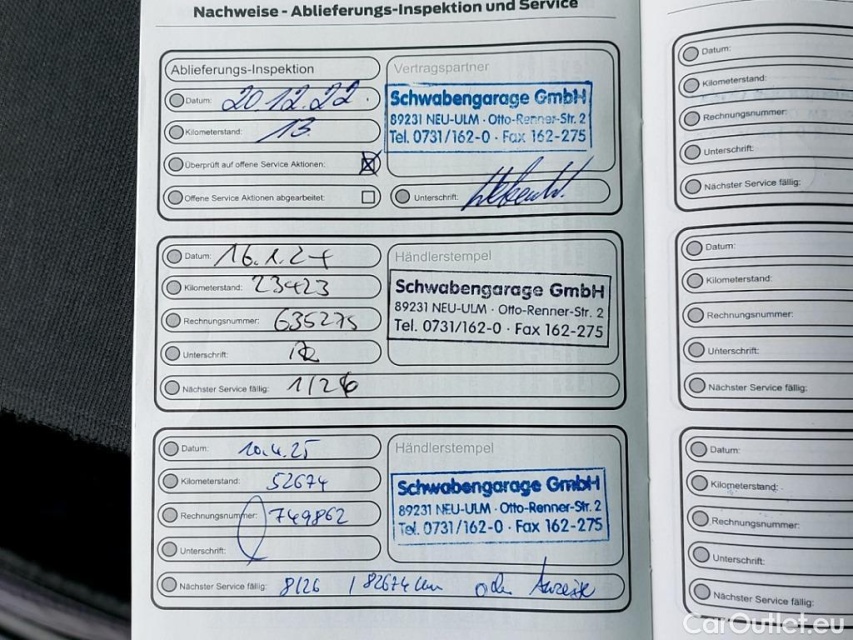 Nachweise - Ablieferungs-Inspektion und Service
Ablieferungs-Inspektion
Datum: 20.12.22.
Kilometerstand: 13
Überprüft auf offene Service Aktionen:
Offene Service Aktionen abgearbeitet:
Vertragspartner
Schwabengarage GmbH
89231 NEU-ULM · Otto-Renner-Str. 2
Tel. 0731/162-0 · Fax 162-275
Unterschrift:
Datum: 16.1.24
Kilometerstand: 23423
Rechnungsnummer: 635275
Unterschrift:
Nächster Service fällig: 1/26
Händlerstempel
Schwabengarage GmbH
89231 NEU-ULM · Otto-Renner-Str. 2
Tel. 0731/162-0 · Fax 162-275
Datum: 10.4.25
Kilometerstand: 52674
Rechnungsnummer: 749862
Unterschrift:
Händlerstempel
Schwabengarage GmbH
89231 NEU-ULM · Otto-Renner-Str. 2
Tel. 0731/162-0 · Fax 162-275
Nächster Service fällig: 8/26 / 82674 km oder Anzeige
Datum:
Kilometerstand:
Rechnungsnummer:
Unterschrift:
Nächster Service fällig:
Datum:
Kilometerstand:
Rechnungsnummer:
Unterschrift:
Nächster Service fällig:
Datum:
Kilometerstand:
Rechnungsnummer:
Unterschrift:
Nächster Service fällig:
CarOutlet.eu